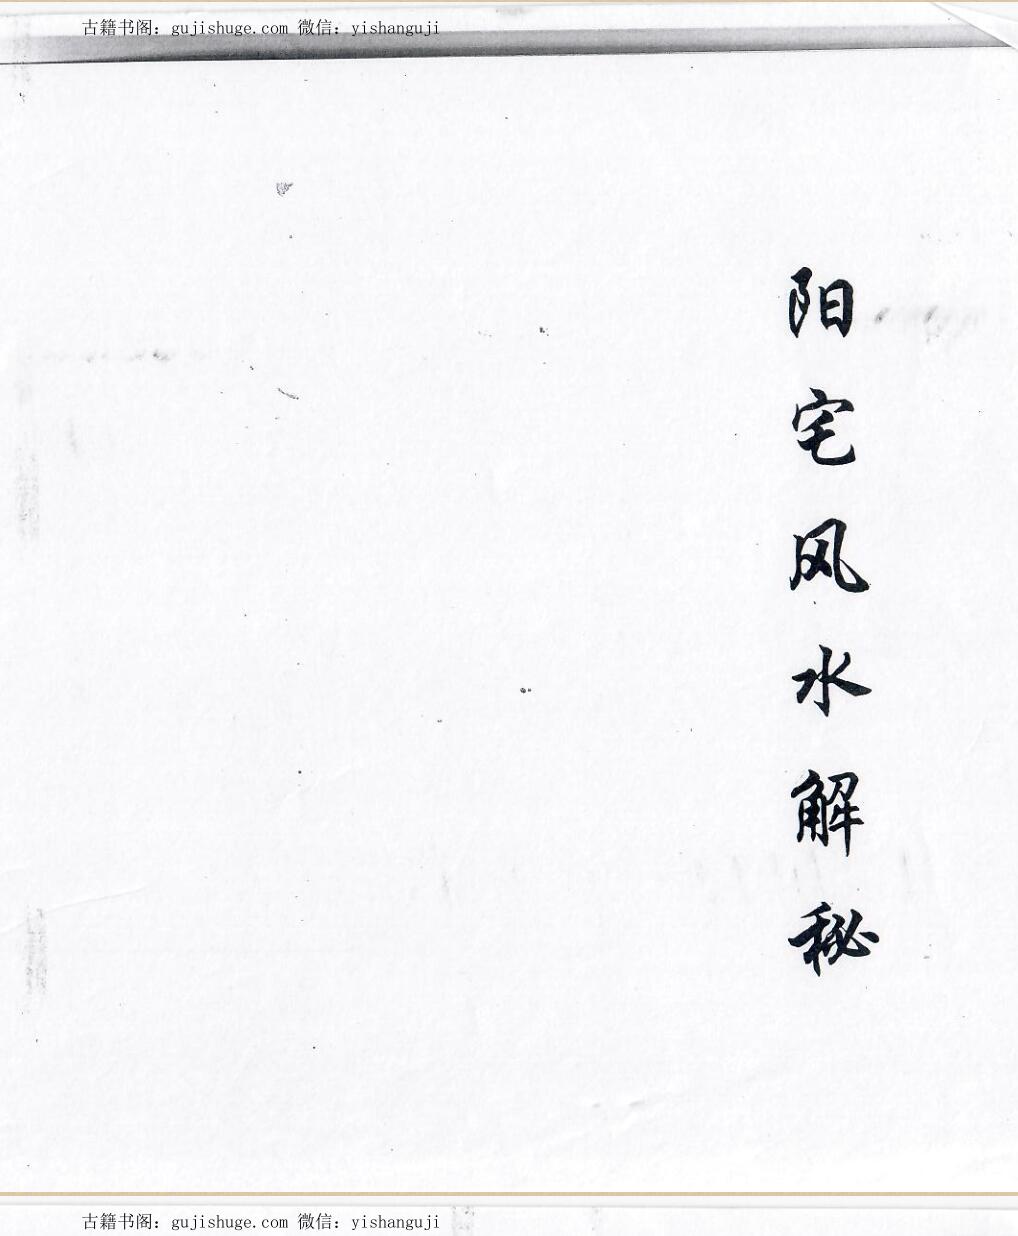 古籍书阁：gujishuge.com 微信：yishanguji
阳宅风水解秘
古籍书阁：gujishuge.com 微信：yishanguji